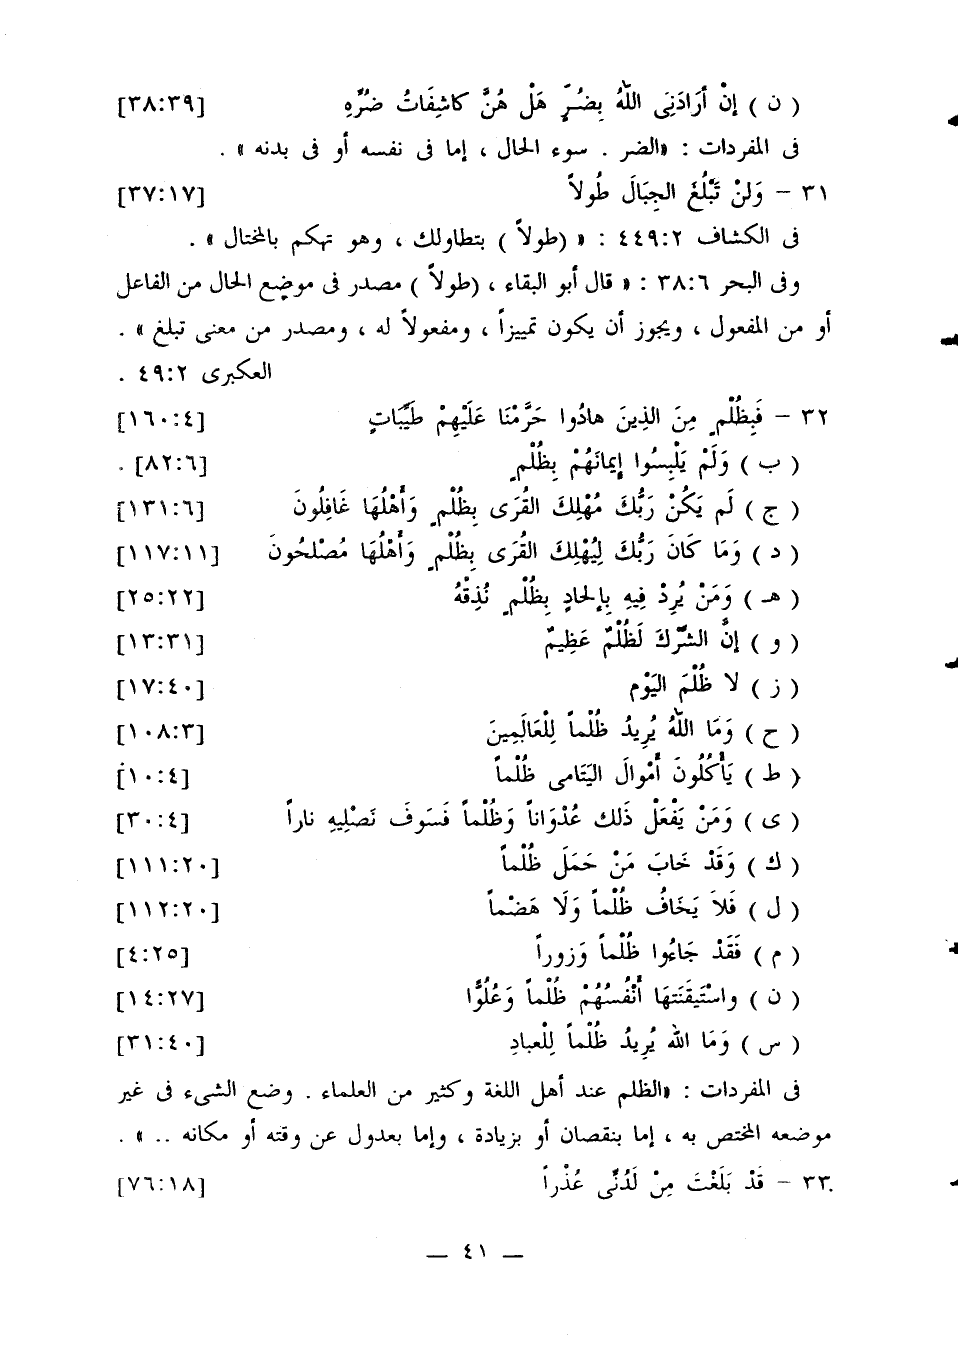 ( ن ) إنْ أرَادَنِىَ اللهُ بِضُرٍّ هَلْ هُنَّ كاشِفَاتُ ضُرِّهِ [٣٨:٣٩]
فى المفردات : «الضر . سوء الحال ، إما فى نفسه أو فى بدنه » .
٣١ – وَلنْ تَبْلُغَ الجِبَالَ طُولاً [٣٧:١٧]
فى الكشاف ٤٤٩:٢ : « (طولاً ) بتطاولك ، وهو تهكم بالمختال » .
وفى البحر ٣٨:٦ : « قال أبو البقاء ، (طولاً ) مصدر فى موضع الحال من الفاعل
أو من المفعول ، ويجوز أن يكون تمييزاً ، ومفعولاً له ، ومصدر من معنى تبلغ » .
العكبرى ٤٩:٢ .
٣٢ – فَبِظُلْمٍ مِنَ الذِينَ هادُوا حَرَّمْنَا عَلَيْهِمْ طَيِّبَاتٍ [١٦٠:٤]
( ب ) وَلَمْ يَلْبِسُوا إيمَانَهُمْ بِظُلْمٍ [٨٢:٦] .
( ج ) لَم يَكُنْ رَبُّكَ مُهْلِكَ القُرَى بِظُلْمٍ وَأهْلُهَا غَافِلُونَ [١٣١:٦]
( د ) وَمَا كَانَ رَبُّكَ لِيُهْلِكَ القُرَى بِظُلْمٍ وَأهْلُهَا مُصْلحُونَ [١١٧:١١]
( هـ ) وَمَنْ يُرِدْ فِيهِ بِإلحَادٍ بِظُلْمٍ نُذِقْهُ [٢٥:٢٢]
( و ) إنَّ الشّركَ لَظُلْمٌ عَظِيمٌ [١٣:٣١]
( ز ) لا ظُلْمَ اليَوْم [١٧:٤٠]
( ح ) وَمَا اللهُ يُرِيدُ ظُلْماً لِلْعَالَمِينَ [١٠٨:٣]
( ط ) يَأْكُلُونَ أمْوالَ اليَتَامى ظُلْماً [١٠:٤]
( ى ) وَمَنْ يَفْعَلْ ذَلك عُدْوَاناً وَظُلْماً فَسَوفَ نَصْلِيهِ ناراً [٣٠:٤]
( ك ) وَقَدْ خَابَ مَنْ حَمَلَ ظُلْماً [١١١:٢٠]
( ل ) فَلاَ يَخَافُ ظُلْماً وَلَا هَضْماً [١١٢:٢٠]
( م ) فَقَدْ جَاءُوا ظُلْماً وَزوراً [٤:٢٥]
( ن ) واسْتَيقَنَتهَا أَنْفُسُهُمْ ظُلْماً وَعُلُوًّا [١٤:٢٧]
( س ) وَمَا الله يُرِيدُ ظُلْماً لِلْعبادِ [٣١:٤٠]
فى المفردات : «الظلم عند أهل اللغة وكثير من العلماء . وضع الشىء فى غير
موضعه المختص به ، إما بنقصان أو بزيادة ، وإما بعدول عن وقته أو مكانه .. » .
٣٣ – قَدْ بَلَغْتَ مِنْ لَدُنِّى عُذْراً [٧٦:١٨]
— ٤١ —